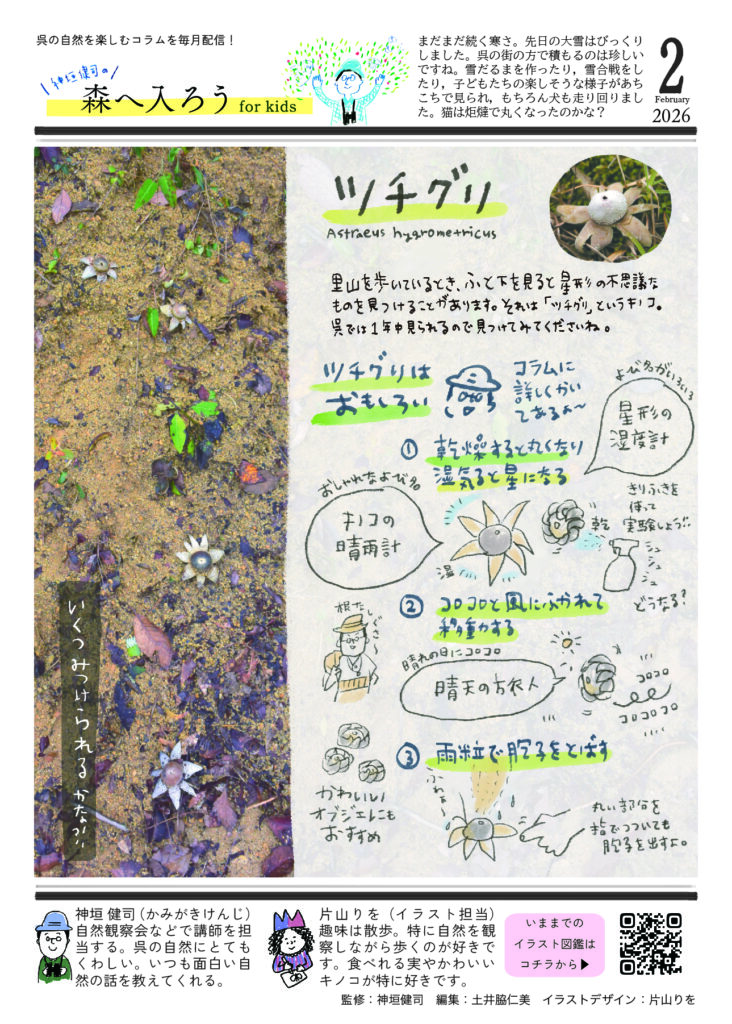 呉の自然を楽しむコラムを毎月配信！
神垣健司の
森へ入ろう for kids~
まだまだ続く寒さ。先日の大雪はびっくり
しました。呉の街の方で積もるのは珍しい
ですね。雪だるまを作ったり，雪合戦をし
たり，子どもたちの楽しそうな様子があち
こちで見られ，もちろん犬も走り回りまし
た。猫は炬燵で丸くなったのかな？
2
February
2026
ツチグリ
Astraeus hygrometricus
里山を歩いているとき、ふと下を見ると星形の不思議な
ものを見つけることがあります。それは「ツチグリ」というキノコ。
呉では1年中見られるので見つけてみてくださいね。
ツチグリは
おもしろい
コラムに
詳しくかい
てあるよ〜
よび名がいろいろ
星形の
湿度計
① 乾燥すると丸くなり
湿気ると星になる
おしゃれなよび名
キノコの
晴雨計
湿
乾
きりふきを
使って
実験しよう!!
シュ
シュ
シュ
どうなる?
② コロコロと風にふかれて
移動する
根なしぐさ〜
晴れの日にコロコロ
晴天の旅人
コロコロ
コロコロコロ
③ 雨粒で胞子をとばす
ふわぁ〜
かわいい
オブジェにも
おすすめ
丸い部分を
指でつついても
胞子を出すよ。
いくつみつけられるかな?!
神垣 健司（かみがきけんじ）
自然観察会などで講師を担
当する。呉の自然にとても
くわしい。いつも面白い自
然の話を教えてくれる。
片山りを（イラスト担当）
趣味は散歩。特に自然を観
察しながら歩くのが好きで
す。食べれる実やかわいい
キノコが特に好きです。
いままでの
イラスト図鑑は
コチラから▶
監修：神垣健司　編集：土井脇仁美　イラストデザイン：片山りを